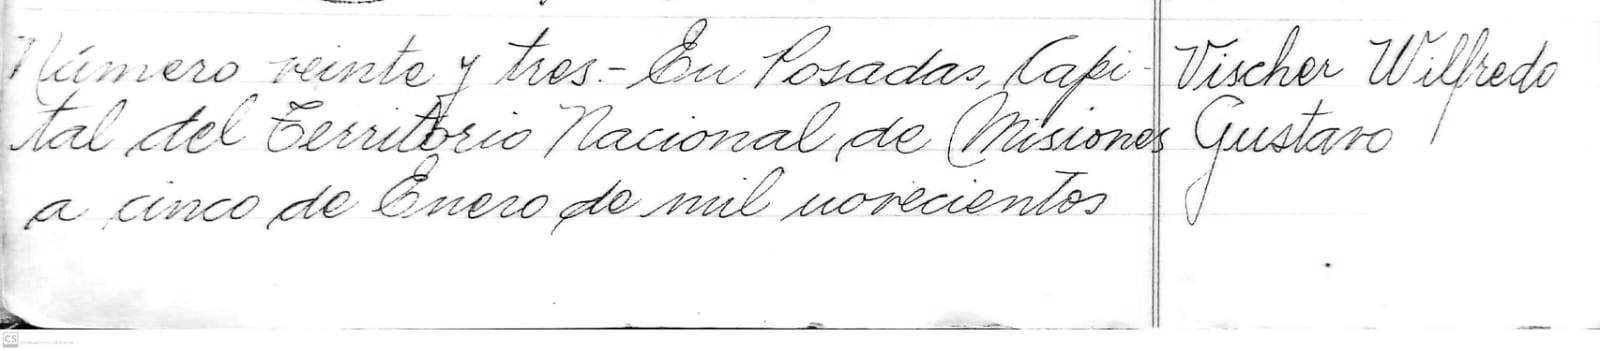 Número veinte y tres.- En Posadas, Capi-
tal del Territorio Nacional de Misiones
a cinco de Enero de mil novecientos
Vischer Wilfredo
Gustavo
CS